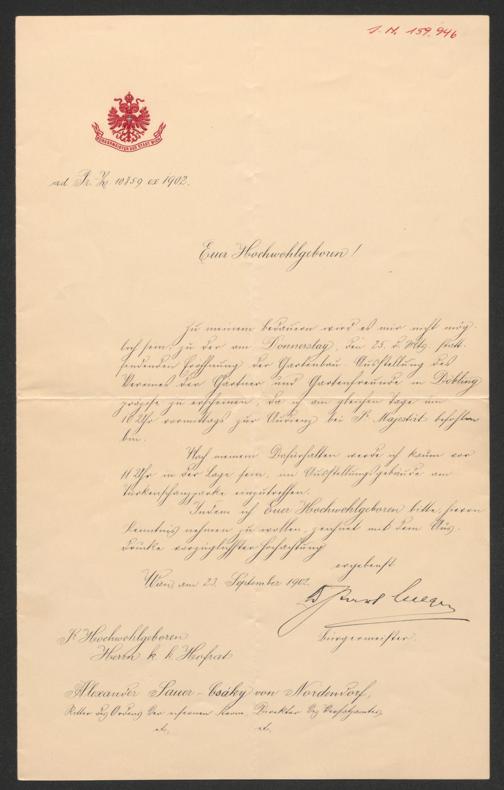 J. N. 159.946
BÜRGERMEISTER DER STADT WIEN
ad Pr. Z. 10859 ex 1902.
Euer Hochwohlgeboren!
Zu meinem Bedauern wird es mir nicht mög-
lich sein, zu der am Donnerstag, den 25. d. Mts. statt-
findenden Eröffnung der Gartenbau-Ausstellung des
Vereines der Gärtner und Gartenfreunde in Döbling
präzise zu erscheinen, da ich am gleichen Tage um
10 Uhr vormittags zur Audienz bei Sr. Majestät befohlen
bin.
Nach meinem Dafürhalten werde ich kaum vor
11 Uhr in der Lage sein, im Ausstellungsgebäude am
Türkenschanzparke einzutreffen.
Indem ich Euer Hochwohlgeboren bitte, hievon
Kenntnis nehmen zu wollen, zeichnet mit dem Aus-
drucke vorzüglichster Hochachtung
ergebenst
Wien, am 23. September 1902.
Dr Karl Lueger
Bürgermeister.
Sr Hochwohlgeboren
Herrn k. k. Hofrat
Alexander Sauer-Csáky von Nordendorf,
Ritter des Ordens der eisernen Krone, Direktor des
etc. etc.